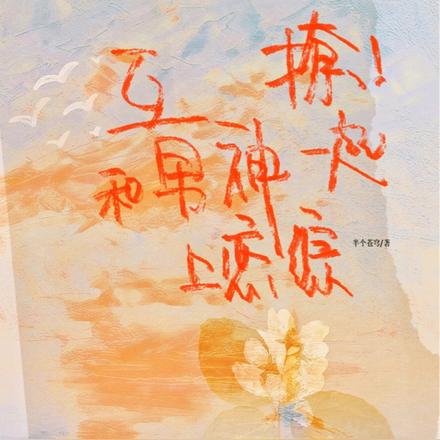 互撩！
和男神一起
上恋综
半个苍穹/著